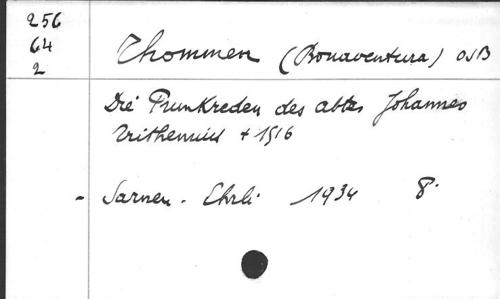 256
64
2
Thommen (Bonaventura) OSB
Die Prunkreden des abtes Johannes
Trithemius + 1516
- Sarnen. Ehrli 1934 8°